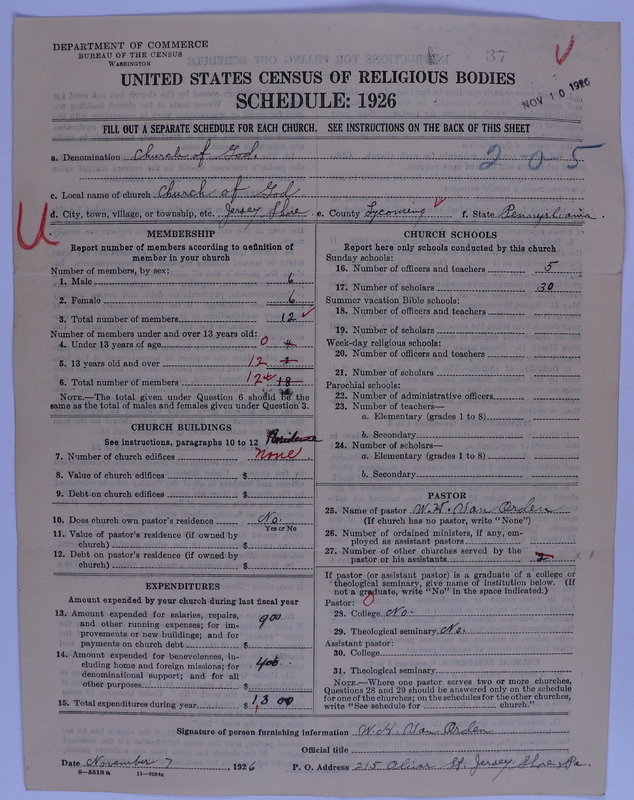 DEPARTMENT OF COMMERCE
BUREAU OF THE CENSUS
WASHINGTON
37
UNITED STATES CENSUS OF RELIGIOUS BODIES
SCHEDULE: 1926
NOV 10 1926
FILL OUT A SEPARATE SCHEDULE FOR EACH CHURCH. SEE INSTRUCTIONS ON THE BACK OF THIS SHEET
a. Denomination Church of God.
205
c. Local name of church Church of God
d. City, town, village, or township, etc. Jersey Shore e. County Lycoming f. State Pennsylvania.
MEMBERSHIP
Report number of members according to definition of
member in your church
Number of members, by sex:
1. Male 6
2. Female 6
3. Total number of members 12
Number of members under and over 13 years old:
4. Under 13 years of age 0 4
5. 13 years old and over 12
6. Total number of members 12 18
NOTE.—The total given under Question 6 should be the
same as the total of males and females given under Question 3.
CHURCH BUILDINGS
See instructions, paragraphs 10 to 12
7. Number of church edifices none
8. Value of church edifices $
9. Debt on church edifices $
10. Does church own pastor's residence No.
Yes or No
11. Value of pastor's residence (if owned by
church) $
12. Debt on pastor's residence (if owned by
church) $
EXPENDITURES
Amount expended by your church during last fiscal year
13. Amount expended for salaries, repairs,
and other running expenses; for im-
provements or new buildings; and for
payments on church debt $ 900
14. Amount expended for benevolences, in-
cluding home and foreign missions; for
denominational support; and for all
other purposes $ 400
15. Total expenditures during year $ 1,300
CHURCH SCHOOLS
Report here only schools conducted by this church
Sunday schools:
16. Number of officers and teachers 5
17. Number of scholars 30
Summer vacation Bible schools:
18. Number of officers and teachers
19. Number of scholars
Week-day religious schools:
20. Number of officers and teachers
21. Number of scholars
Parochial schools:
22. Number of administrative officers
23. Number of teachers—
a. Elementary (grades 1 to 8)
b. Secondary
24. Number of scholars—
a. Elementary (grades 1 to 8)
b. Secondary
PASTOR
25. Name of pastor W. H. Van Orden
(If church has no pastor, write "None")
26. Number of ordained ministers, if any, em-
ployed as assistant pastors
27. Number of other churches served by the
pastor or his assistants 2 x 1
If pastor (or assistant pastor) is a graduate of a college or
theological seminary, give name of institution below. (If
not a graduate, write "No" in the space indicated.)
Pastor: 0
28. College No.
29. Theological seminary No.
Assistant pastor:
30. College
31. Theological seminary
NOTE.—Where one pastor serves two or more churches,
Questions 28 and 29 should be answered only on the schedule
for one of the churches; on the schedules for the other churches,
write "See schedule for church."
Signature of person furnishing information W. H. Van Orden
Official title
Date November 7, 1926 P. O. Address 215 Oliver St. Jersey Shore, Pa.
8—5518a 11—9054a